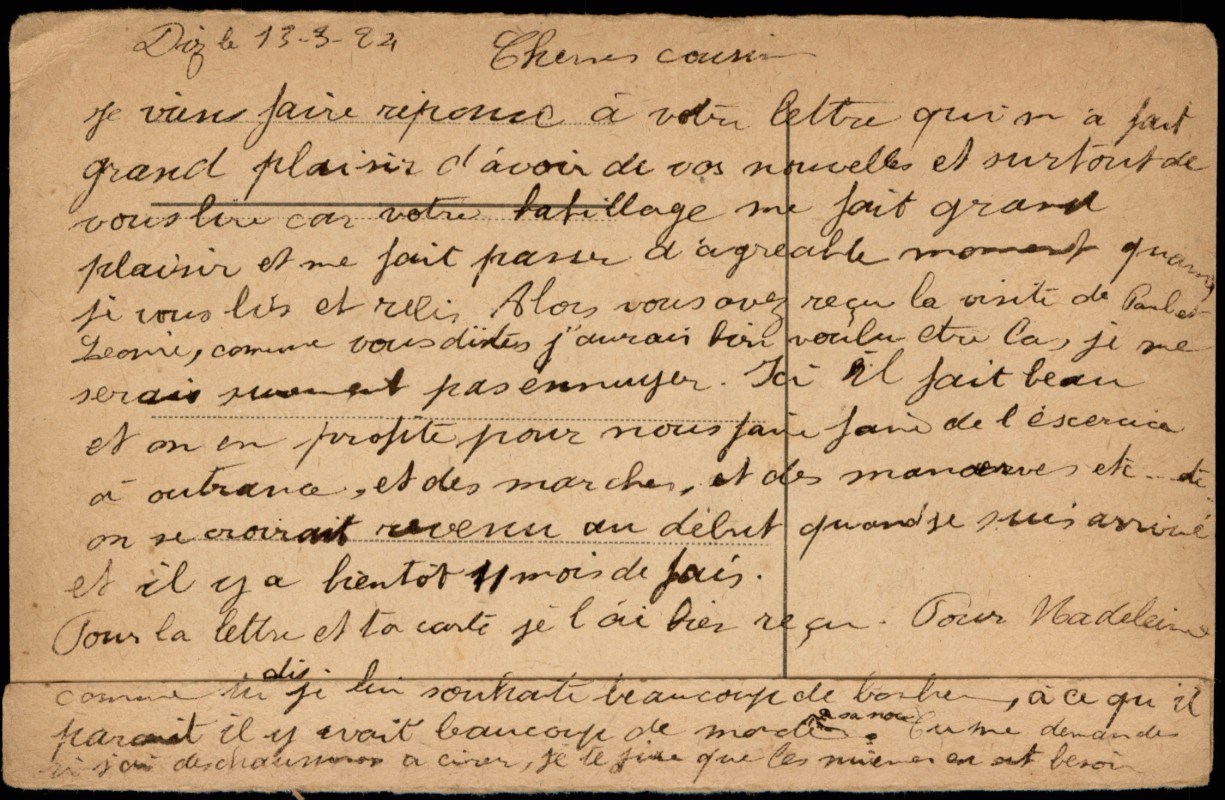 Diz le 13-3-24
Cheres cousin
Je viens faire réponse à votre lettre qui m'a fait
grand plaisir d'avoir de vos nouvelles et surtout de
vous lire car votre babillage me fait grand
plaisir et me fait passer d'agreable moment quand
je vous lis et relis, Alors vous avez reçu la visite de Paul et
Leonie, comme vous dites j'aurais bien voulu etre la, je me
serais surement pas ennuyer. Ici il fait beau
et on en profite pour nous faire faire de l'éscercice
à outrance, et des marches, et des manoeuvres etc...
on se croirait revenu au début quand je suis arrivé
et il y a bientôt 11 mois de fais.
Pour la lettre et ta carte je l'ai bien reçu. Pour Madeleine
comme tu dis je lui souhaite beaucoup de bonheur, à ce qu'il
parait il y avait beaucoup de monde a sa noce. Tu me demandes
si j'ai des chaussures a cirer, je te jure que les miennes en ont besoin